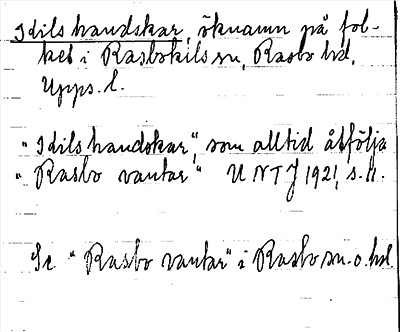 Kils handskar, öknamn på fol-
ket i Rasbokils sn, Rasbo hd,
Upps. l.
"Kils handskar", som alltid åtfölja
"Rasbo vantar" UNTJ 1921, s. 11.
Se "Rasbo vantar" i Rasbo sn. o. hd